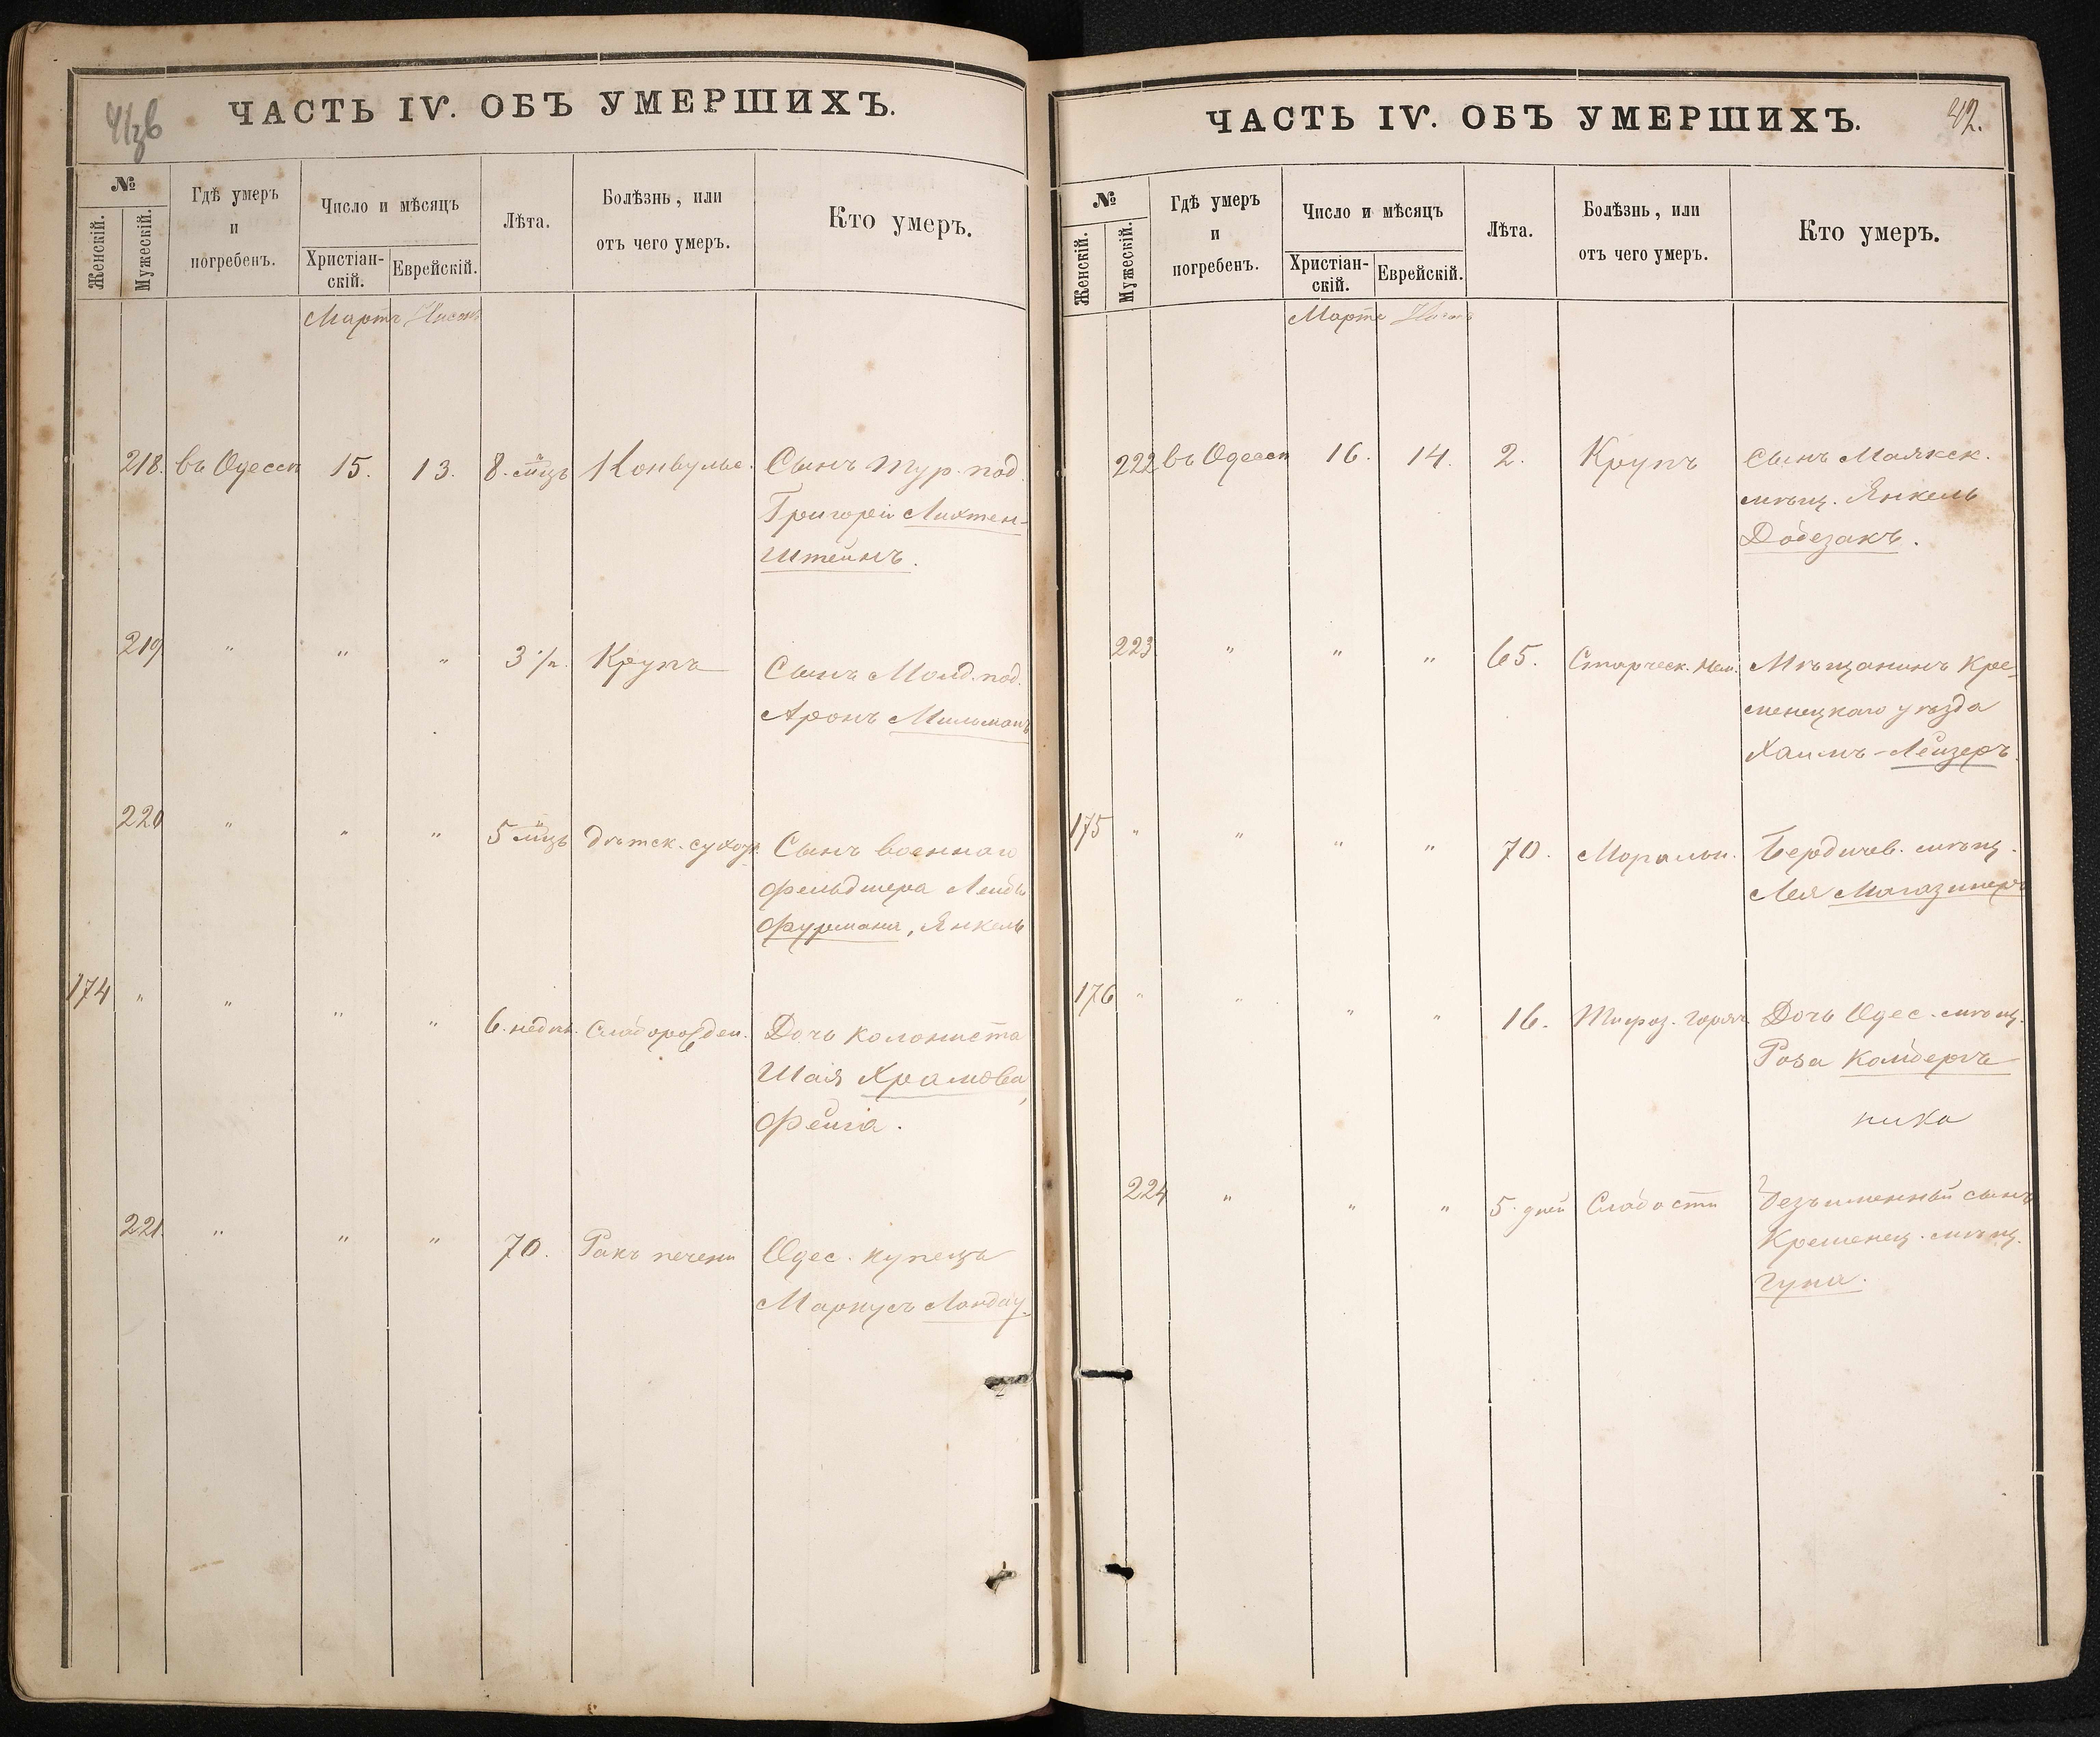 41зв
ЧАСТЬ IV. ОБЪ УМЕРШИХЪ.
№
Женскій.
Мужескій.
Гдѣ умеръ
и
погребенъ.
Число и мѣсяцъ
Христіан-
скій.
Еврейскій.
Лѣта.
Болѣзнь, или
отъ чего умеръ.
Кто умеръ.
Мартъ Нисанъ
218. въ Одессѣ 15. 13. 8. мцъ Конвульс. Сынъ тур. под.
Григорій Лихтен-
штейнъ.
219 " " " 3 1/2. Крупъ Сынъ Молд. под.
Аронъ Мильманъ
220 " " " 5 мцъ дѣтск. сухот. Сынъ военнаго
фельдшера Лейбъ
Фурмана, Янкель
174 " " " " 6. недѣл. Слаборожден. Дочь колониста
Шая Храмова,
Фейга.
221. " " " 70. Ракъ печени Одес. купецъ
Маркусъ Ландау.
ЧАСТЬ IV. ОБЪ УМЕРШИХЪ.
42.
№
Женскій.
Мужескій.
Гдѣ умеръ
и
погребенъ.
Число и мѣсяцъ
Христіан-
скій.
Еврейскій.
Лѣта.
Болѣзнь, или
отъ чего умеръ.
Кто умеръ.
Мартъ Нисанъ
222 въ Одессѣ 16. 14. 2. Крупъ Сынъ Маякск.
мѣщ. Янкель
Добезакъ.
223 " " " 65. Старческ. Мѣщанинъ Кре-
менецкаго уѣзда
Хаимъ-Лейзеръ.
175 " " " " 70. Бердичев. мѣщ.
Лея Магазинеръ
176 " " " " 16. Тифоз. горяч. Дочь Одес. мѣщ.
Роза
ника
224 " " " 5. дней Слабости Безъименный сынъ
Кременец. мѣщ.
Гуна.